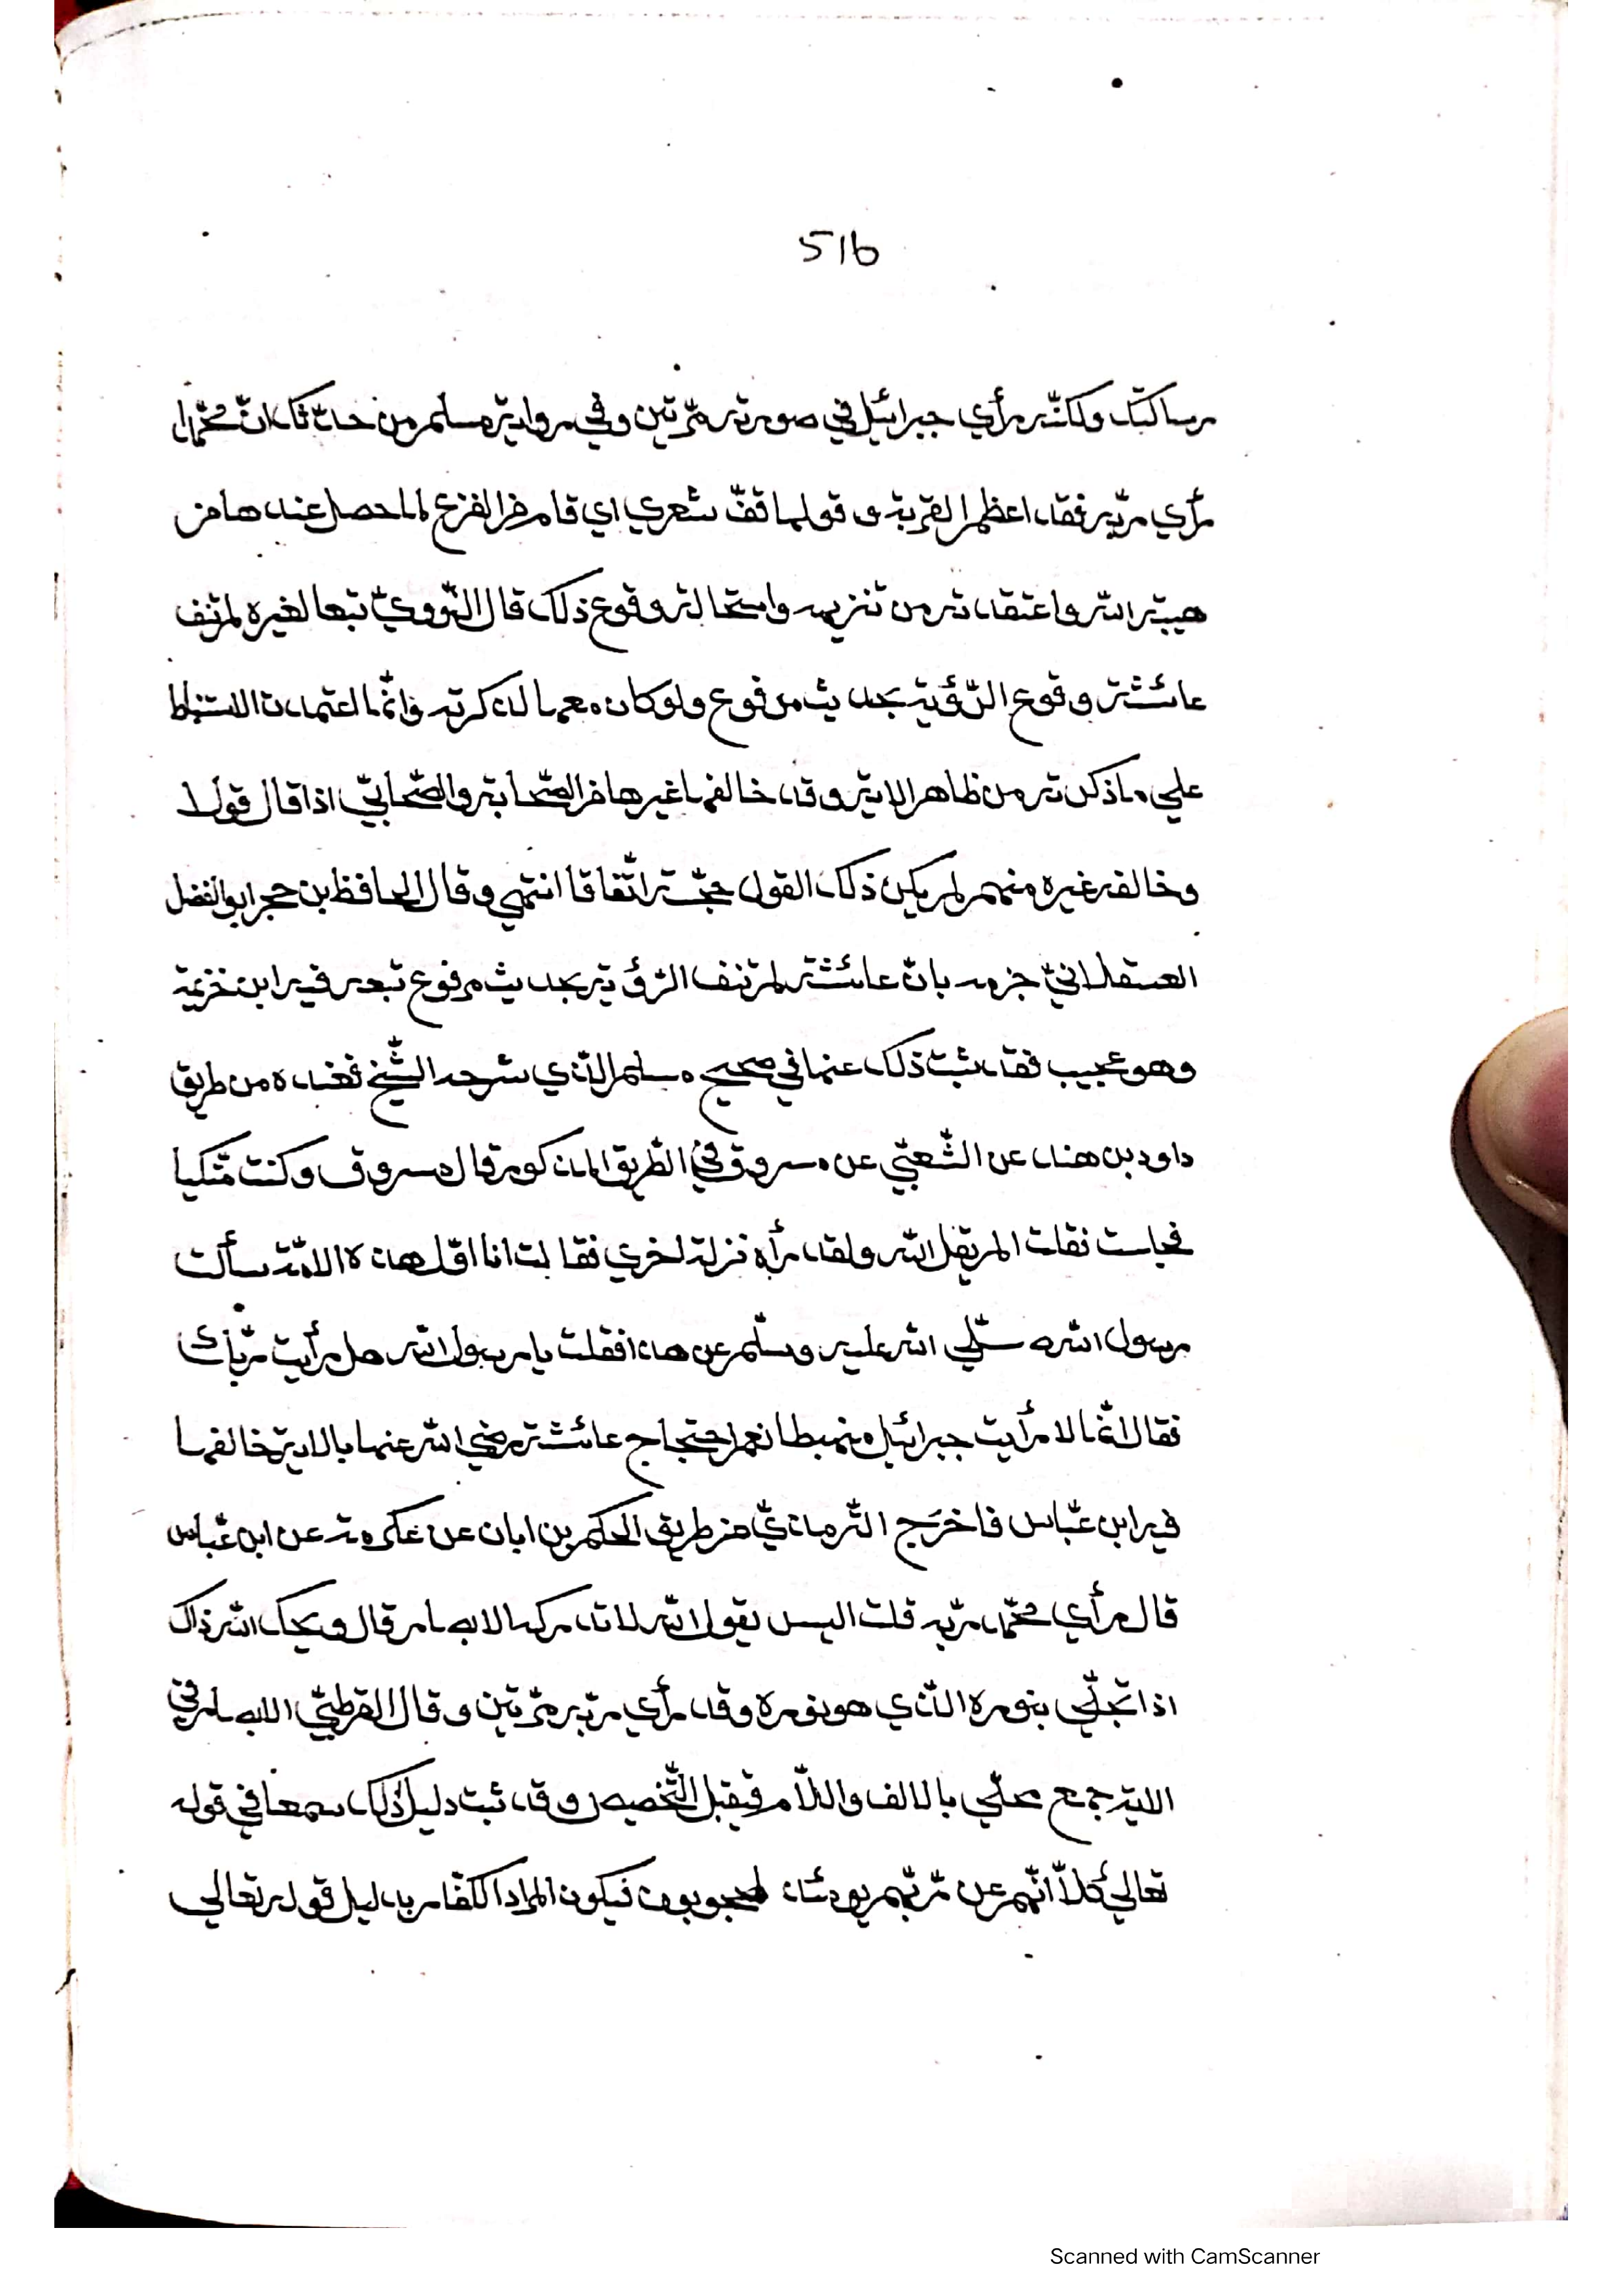 516
رسالته ولكنّه رأي جبرائيل في صورته مرّتين وفي رواية مسلم من حدّثك انّ محمّدا
رأي ربّه فقد اعظم القرية وقولها قفّ شعري اي قام من الفزع لما حصل عندها من
هيبة الله واعتقدته من تنزيهه واستحالة وقوع ذلك قال النّوويّ تبعا لغيره لم تنف
عائشة وقوع الرّؤية بحديث مرفوع ولو كان معها لذكرته وانّما اعتمدت الاستنباط
علي ما ذكرته من ظاهر الاية وقد خالفها غيرها من الصّحابة والصّحابيّ اذا قال قولا
وخالفه غيره منهم لم يكن ذلك القول حجّة اتّفاقا انتهي وقال الحافظ بن حجر ابو الفضل
العسقلانيّ جزمه بانّ عائشة لم تنف الرّؤية بحديث مرفوع تبعه فيه ابن خزيمة
وهو عجيب فقد ثبت ذلك عنها في صحيح مسلم الّذي شرحه الشّيخ فعنده من طريق
داود بن هند عن الشّعبيّ عن مسروق في الطّريق المذكور قال مسروق وكنت متّكيا
فجلست فقلت الم يقل الله ولقد رأه نزلة اخري فقالت انا اوّل هذه الامّة سألت
رسول الله صلّي الله عليه وسلّم عن هذا فقلت يا رسول الله هل رأيت ربّك
فقال لا انّما رأيت جبرائيل منهبطا نعم احتجاج عائشة رضي الله عنها بالاية خالفها
فيه ابن عبّاس فاخرَج التّرمذيّ من طريق الحكم بن ابان عن عكرمة عن ابن عبّاس
قال رأي محمّد ربّه قلت اليس يقول الله لا تدركه الابصار قال ويحك الله ذاك
اذا تجلّي بنوره الّذي هو نوره وقد رأي ربّه مرّتين وقال القرطبيّ الابصار في
الاية جمع محلّي بالالف واللّام فيقبل التّخصيص وقد ثبت دليل ذلك سمعا في قوله
تعالي كلّا انّهم عن ربّهم يومئذ لمحجوبون فيكون المراد الكفّار بدليل قوله تعالي
Scanned with CamScanner